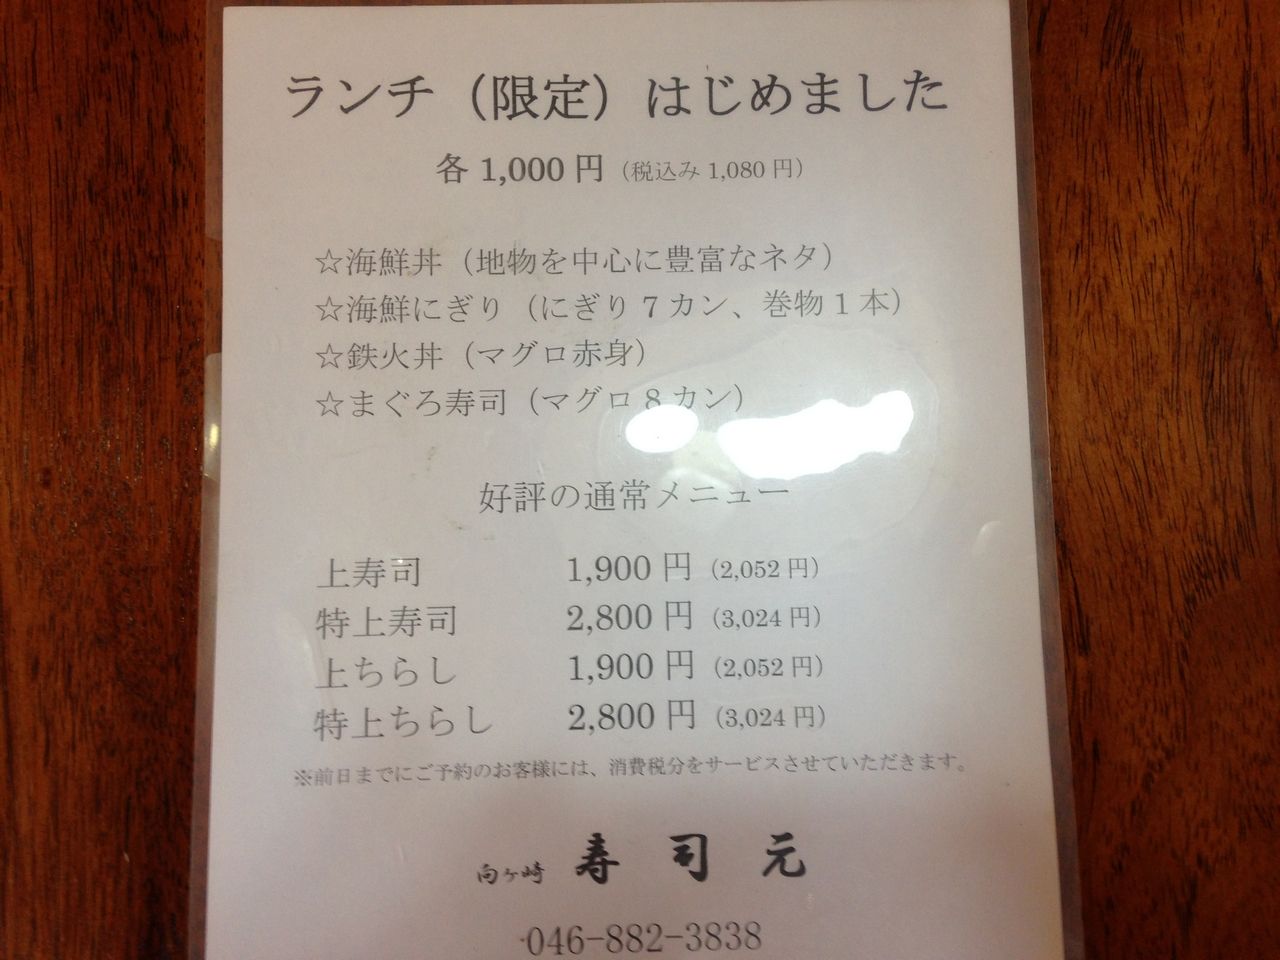 ランチ（限定）はじめました
各 1,000 円（税込み 1,080 円）
☆海鮮丼（地物を中心に豊富なネタ）
☆海鮮にぎり（にぎり 7 カン、巻物 1 本）
☆鉄火丼（マグロ赤身）
☆まぐろ寿司（マグロ 8 カン）
好評の通常メニュー
上寿司 1,900 円（2,052 円）
特上寿司 2,800 円（3,024 円）
上ちらし 1,900 円（2,052 円）
特上ちらし 2,800 円（3,024 円）
※前日までにご予約のお客様には、消費税分をサービスさせていただきます。
向ヶ崎 寿司元
046-882-3838